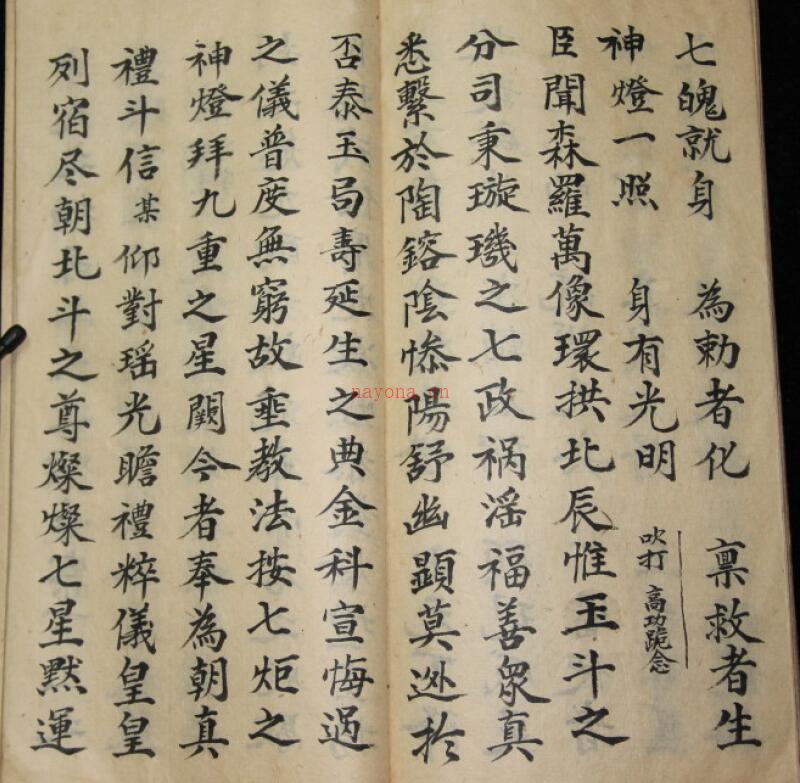 七魄就身　為勅者化　稟救者生
神燈一照　身有光明　吹打　高功跪念
臣聞森羅萬像環拱北辰惟玉斗之
分司秉璇璣之七政祸滛福善衆真
悉繫於陶鎔陰惨陽舒幽顯莫迯於
否泰玉局壽延生之典金科宣悔過
之儀普度無窮故垂教法按七炬之
神燈拜九重之星闕今者奉為朝真
禮斗信某仰對瑶光瞻禮粹儀皇皇
列宿尽朝北斗之尊燦燦七星黙運
nayona.cn